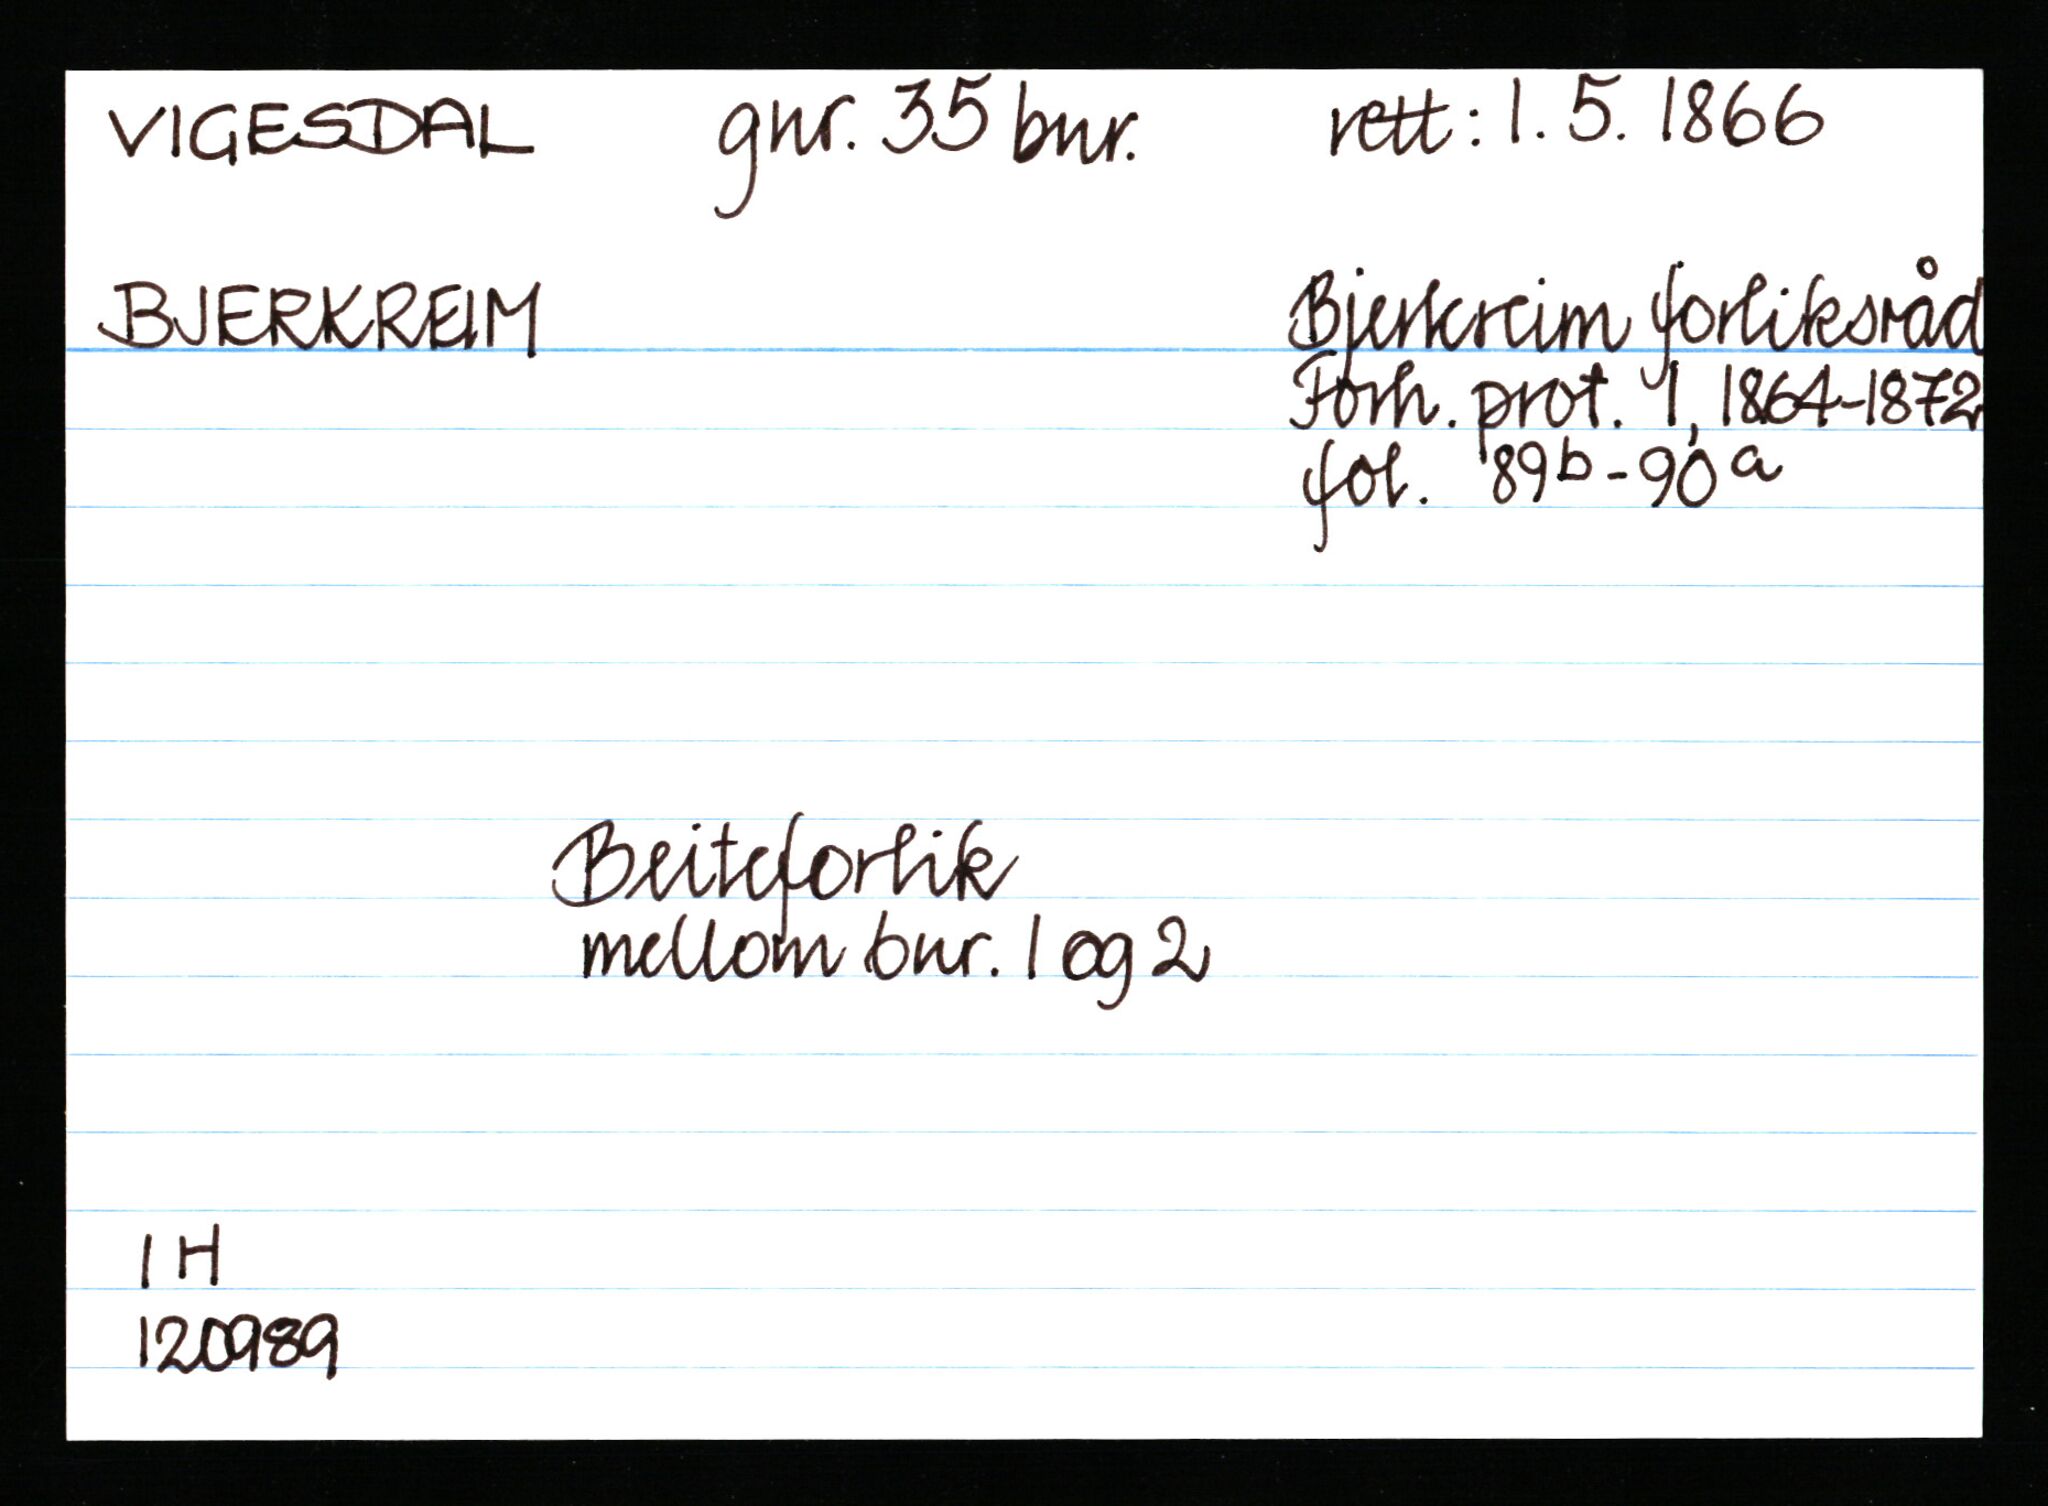 VIGESDAL gnr. 35 bnr. rett: 1. 5. 1866
BJERKREIM Bjerkreim forliksråd
Forh. prot. 1, 1864-1872
fol. 89b - 90a
Beiteforlik
mellom bnr. 1 og 2
IH
120989